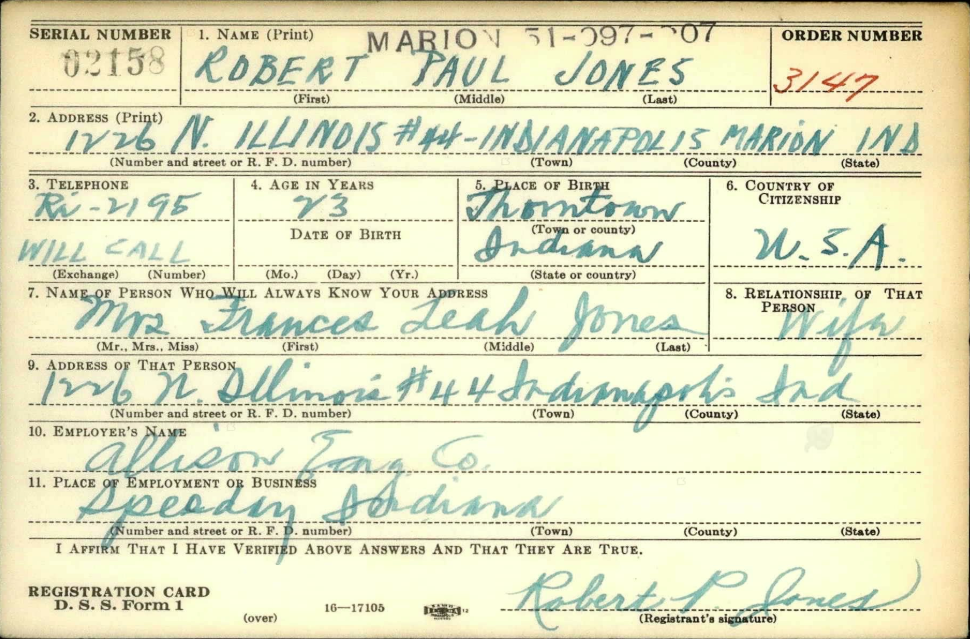 SERIAL NUMBER 1. NAME (Print) MARION 51-097-207 ORDER NUMBER
02158 ROBERT PAUL JONES 3147
(First) (Middle) (Last)
2. ADDRESS (Print)
1226 N. ILLINOIS #44-INDIANAPOLIS MARION IND
(Number and street or R. F. D. number) (Town) (County) (State)
3. TELEPHONE 4. AGE IN YEARS 5. PLACE OF BIRTH 6. COUNTRY OF CITIZENSHIP
Ri-2195 23 Thorntown
DATE OF BIRTH (Town or county)
WILL CALL Indiana U.S.A.
(Exchange) (Number) (Mo.) (Day) (Yr.) (State or country)
7. NAME OF PERSON WHO WILL ALWAYS KNOW YOUR ADDRESS 8. RELATIONSHIP OF THAT PERSON
Mrs Frances Leah Jones Wife
(Mr., Mrs., Miss) (First) (Middle) (Last)
9. ADDRESS OF THAT PERSON
1226 N. Illinois #44 Indianapolis Ind
(Number and street or R. F. D. number) (Town) (County) (State)
10. EMPLOYER'S NAME
Allison Eng. Co.
11. PLACE OF EMPLOYMENT OR BUSINESS
Speeday Indiana
(Number and street or R. F. D. number) (Town) (County) (State)
I AFFIRM THAT I HAVE VERIFIED ABOVE ANSWERS AND THAT THEY ARE TRUE.
REGISTRATION CARD
D. S. S. Form 1 Robert P. Jones
(over) 16—17105 (Registrant's signature)